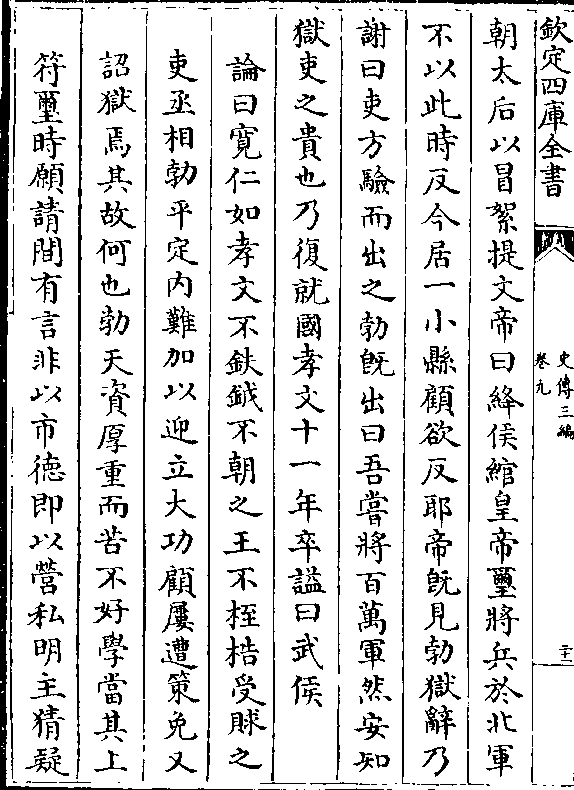 欽定四庫全書
史傳三編
卷九
二十二
朝太后以冒絮提文帝曰絳侯綰皇帝璽將兵於北軍
不以此時反今居一小縣顧欲反耶帝旣見勃獄辭乃
謝曰吏方驗而出之勃旣出曰吾嘗將百萬軍然安知
獄吏之貴也乃復就國孝文十一年卒諡曰武侯
論曰寛仁如孝文不鈇鉞不朝之王不桎梏受賕之
吏丞相勃平定内難加以迎立大功顧屢遭策免又
詔獄焉其故何也勃天資厚重而苦不好學當其上
符璽時願請間有言非以市德即以營私明主猜疑